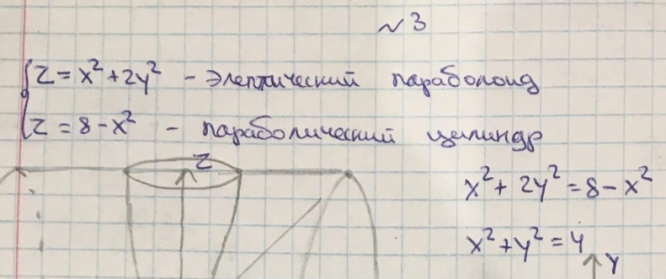 №3
z = x² + 2y² - элептический параболоид
z = 8 - x² - параболический цилиндр
z
x² + 2y² = 8 - x²
x² + y² = 4
y